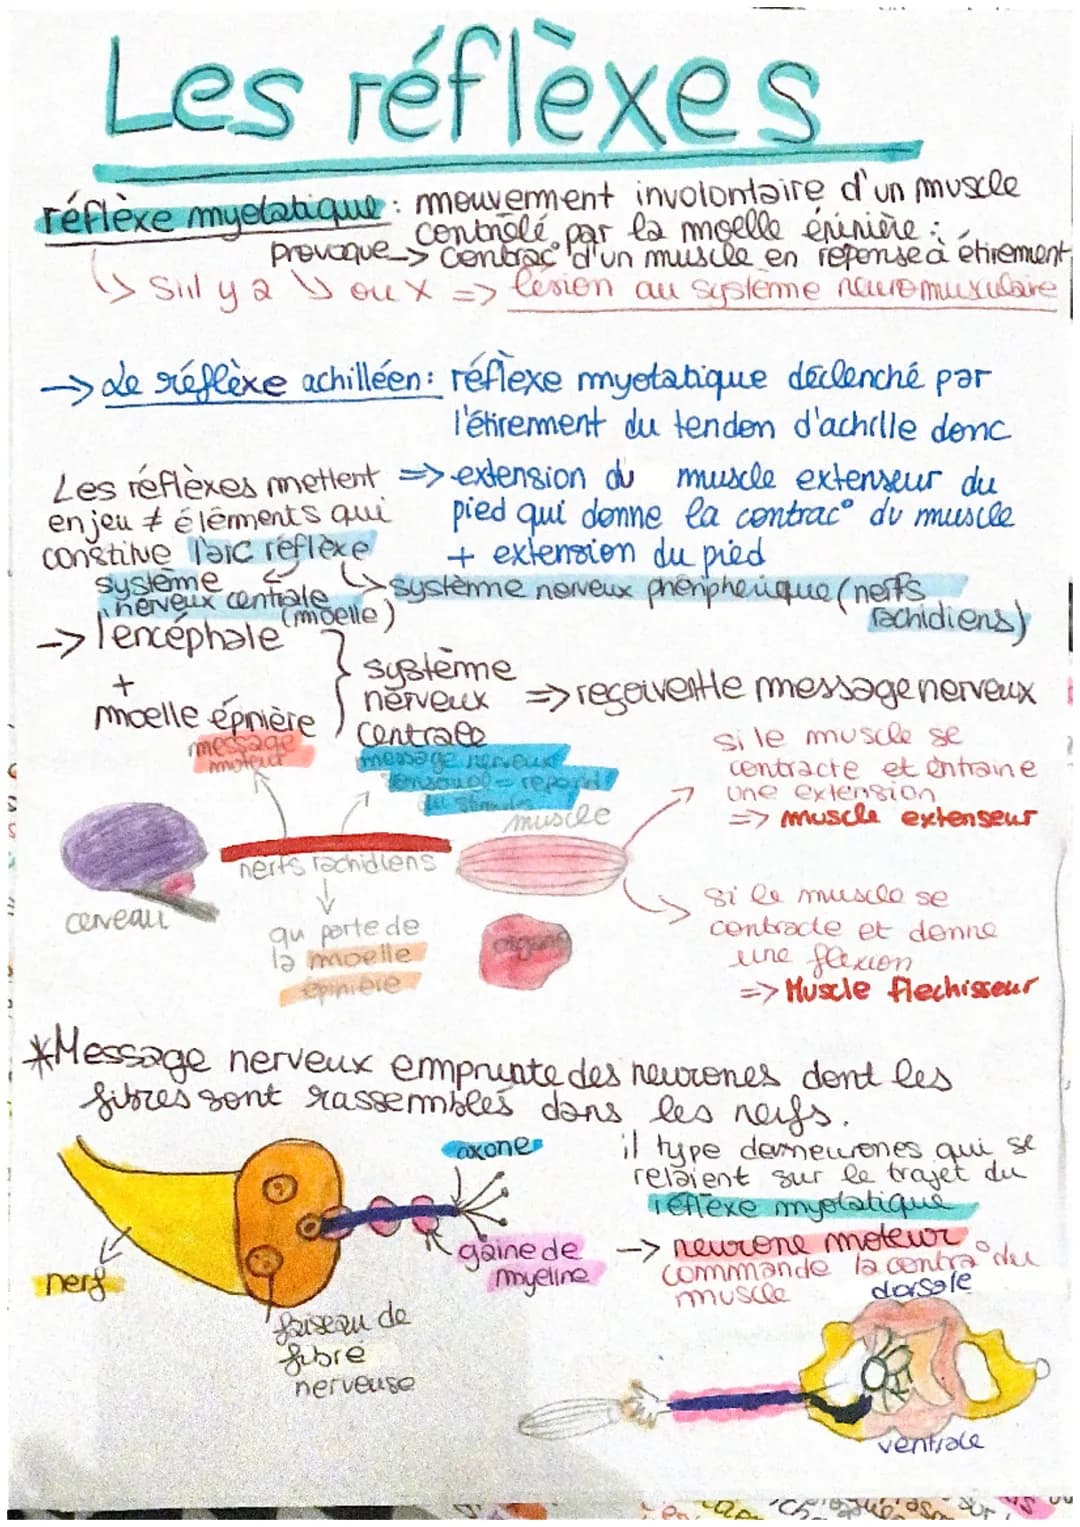 Les réflèxes
réflèxe myotatique : mouvement involontaire d'un muscle
contrôlé par la moelle épinière :
provoque -> contrac° d'un muscle en réponse à étirement
↳ S'il y a ↘ ou X => lésion au système neuromusculaire
-> Le réflèxe achilléen : réflèxe myotatique déclenché par
l'étirement du tendon d'achille donc
=> extension du muscle extenseur du
pied qui donne la contrac° du muscle
+ extension du pied
Les réflèxes mettent
en jeu ≠ élèments qui
constitue l'arc réflèxe
système
nerveux centrale
(moelle)
système nerveux phériphérique (nerfs
rachidiens)
-> l'encéphale
+
moelle épinière
système
nerveux
centrale
=> reçoivent le message nerveux
message
moteur
message nerveux
sensoriel = répond
au stimulus
muscle
cerveau
nerfs rachidiens
qui parte de
la moelle
épinière
organe
si le muscle se
contracte et entraine
une extension
=> muscle extenseur
si le muscle se
contracte et donne
une flexion
=> Muscle flechisseur
*Message nerveux emprunte des neurones dont les
fibres sont rassemblés dans les nerfs.
axone
gaine de
myeline
nerf
faiseau de
fibre
nerveuse
il type de neurones qui se
relaient sur le trajet du
réflèxe myotatique
-> neurone moteur
commande la contra° du
muscle
dorsale
ventrale